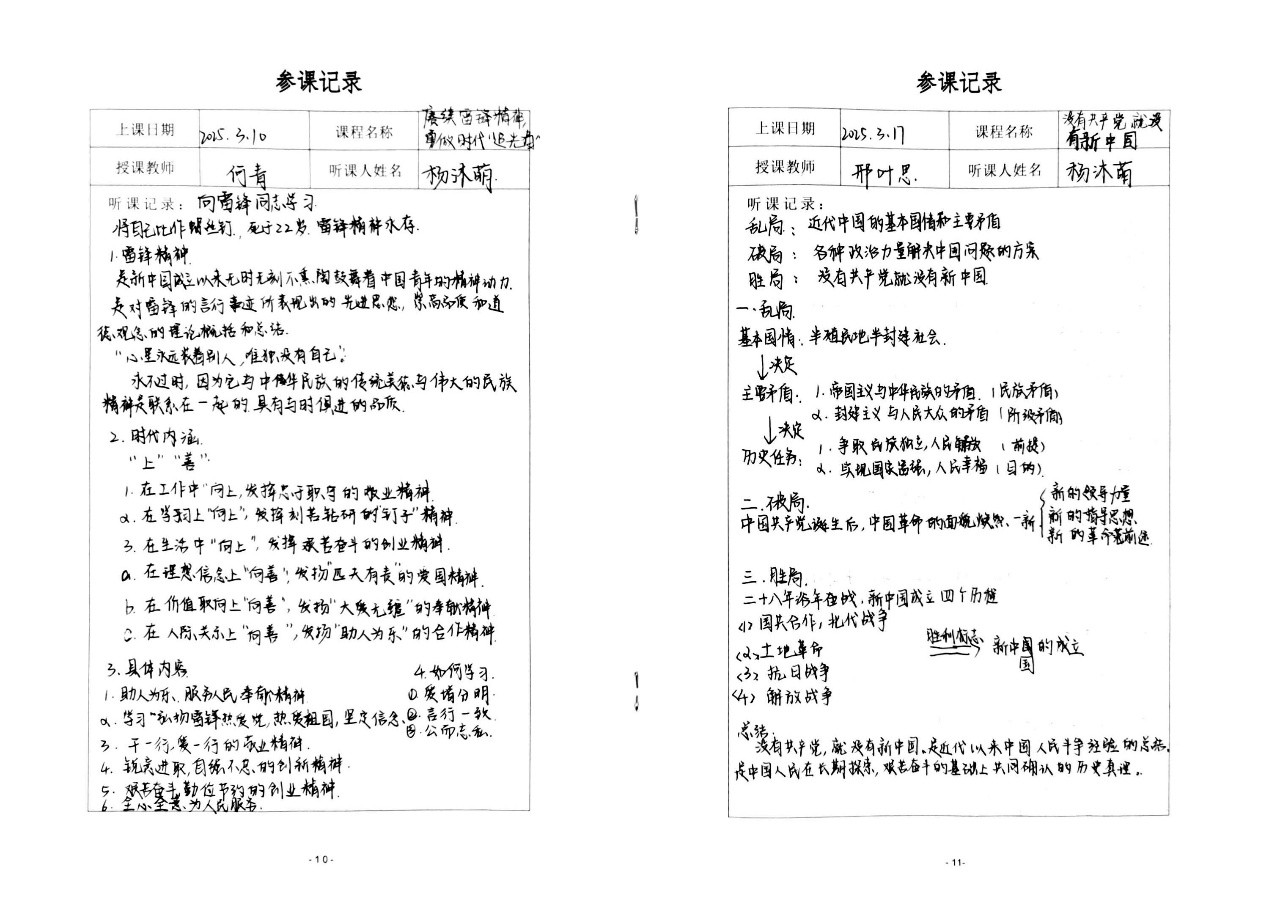 参课记录
上课日期 2025.3.10 课程名称 赓续雷锋精神,
争做时代"追光者"
授课教师 何青 听课人姓名 杨沐萌.
听课记录: 向雷锋同志学习.
将自己比作螺丝钉, 死于22岁. 雷锋精神永存.
1.雷锋精神.
是新中国成立以来无时无刻不熏陶鼓舞着中国青年的精神动力.
是对雷锋的言行事迹所表现出的先进思想, 崇高品质和道
德观念的理论概括和总结.
"心里永远装着别人, 唯独没有自己".
永不过时, 因为它与中华民族的传统美德与伟大的民族
精神是联系在一起的. 具有与时俱进的品质.
2.时代内涵.
"上" "善".
1.在工作中"向上, 发挥忠于职守的敬业精神.
2.在学习上"向上", 发挥刻苦钻研的"钉子"精神.
3.在生活中"向上", 发挥艰苦奋斗的创业精神.
a.在理想信念上"向善", 发扬"匹夫有责"的爱国精神.
b.在价值取向上"向善", 发扬"大爱无疆"的奉献精神.
c.在人际关系上"向善", 发扬"助人为乐"的合作精神.
3.具体内容
1.助人为乐、服务人民奉献精神
2.学习"弘扬雷锋热爱党, 热爱祖国, 坚定信念.
3.干一行, 爱一行的敬业精神.
4.锐意进取, 自强不息的创新精神.
5.艰苦奋斗勤俭节约的创业精神.
6.全心全意为人民服务.
4.如何学习.
① 爱憎分明.
② 言行一致.
③ 公而忘私.
-10-
参课记录
上课日期 2025.3.17 课程名称 没有共产党就没
有新中国
授课教师 邢叶思. 听课人姓名 杨沐萌
听课记录:
乱局: 近代中国的基本国情和主要矛盾
破局: 各种政治力量解决中国问题的方案
胜局: 没有共产党就没有新中国.
一.乱局.
基本国情: 半殖民地半封建社会.
↓决定
主要矛盾: 1.帝国主义与中华民族的矛盾. (民族矛盾)
2.封建主义与人民大众的矛盾 (阶级矛盾)
↓决定
历史任务: 1.争取民族独立,人民解放 (前提)
2.实现国家富强,人民幸福 (目的)
二.破局.
中国共产党诞生后, 中国革命的面貌焕然一新
新的领导力量
新的指导思想
新的革命前途.
三.胜局.
二十八年浴血奋战, 新中国成立四个历程
<1> 国共合作, 北伐战争
<2> 土地革命
<3> 抗日战争
<4> 解放战争
胜利标志 新中国的成立
国
总结:
没有共产党, 就没有新中国. 是近代以来中国人民斗争经验的总结,
是中国人民在长期探索, 艰苦奋斗的基础上共同确认的历史真理.
-11-